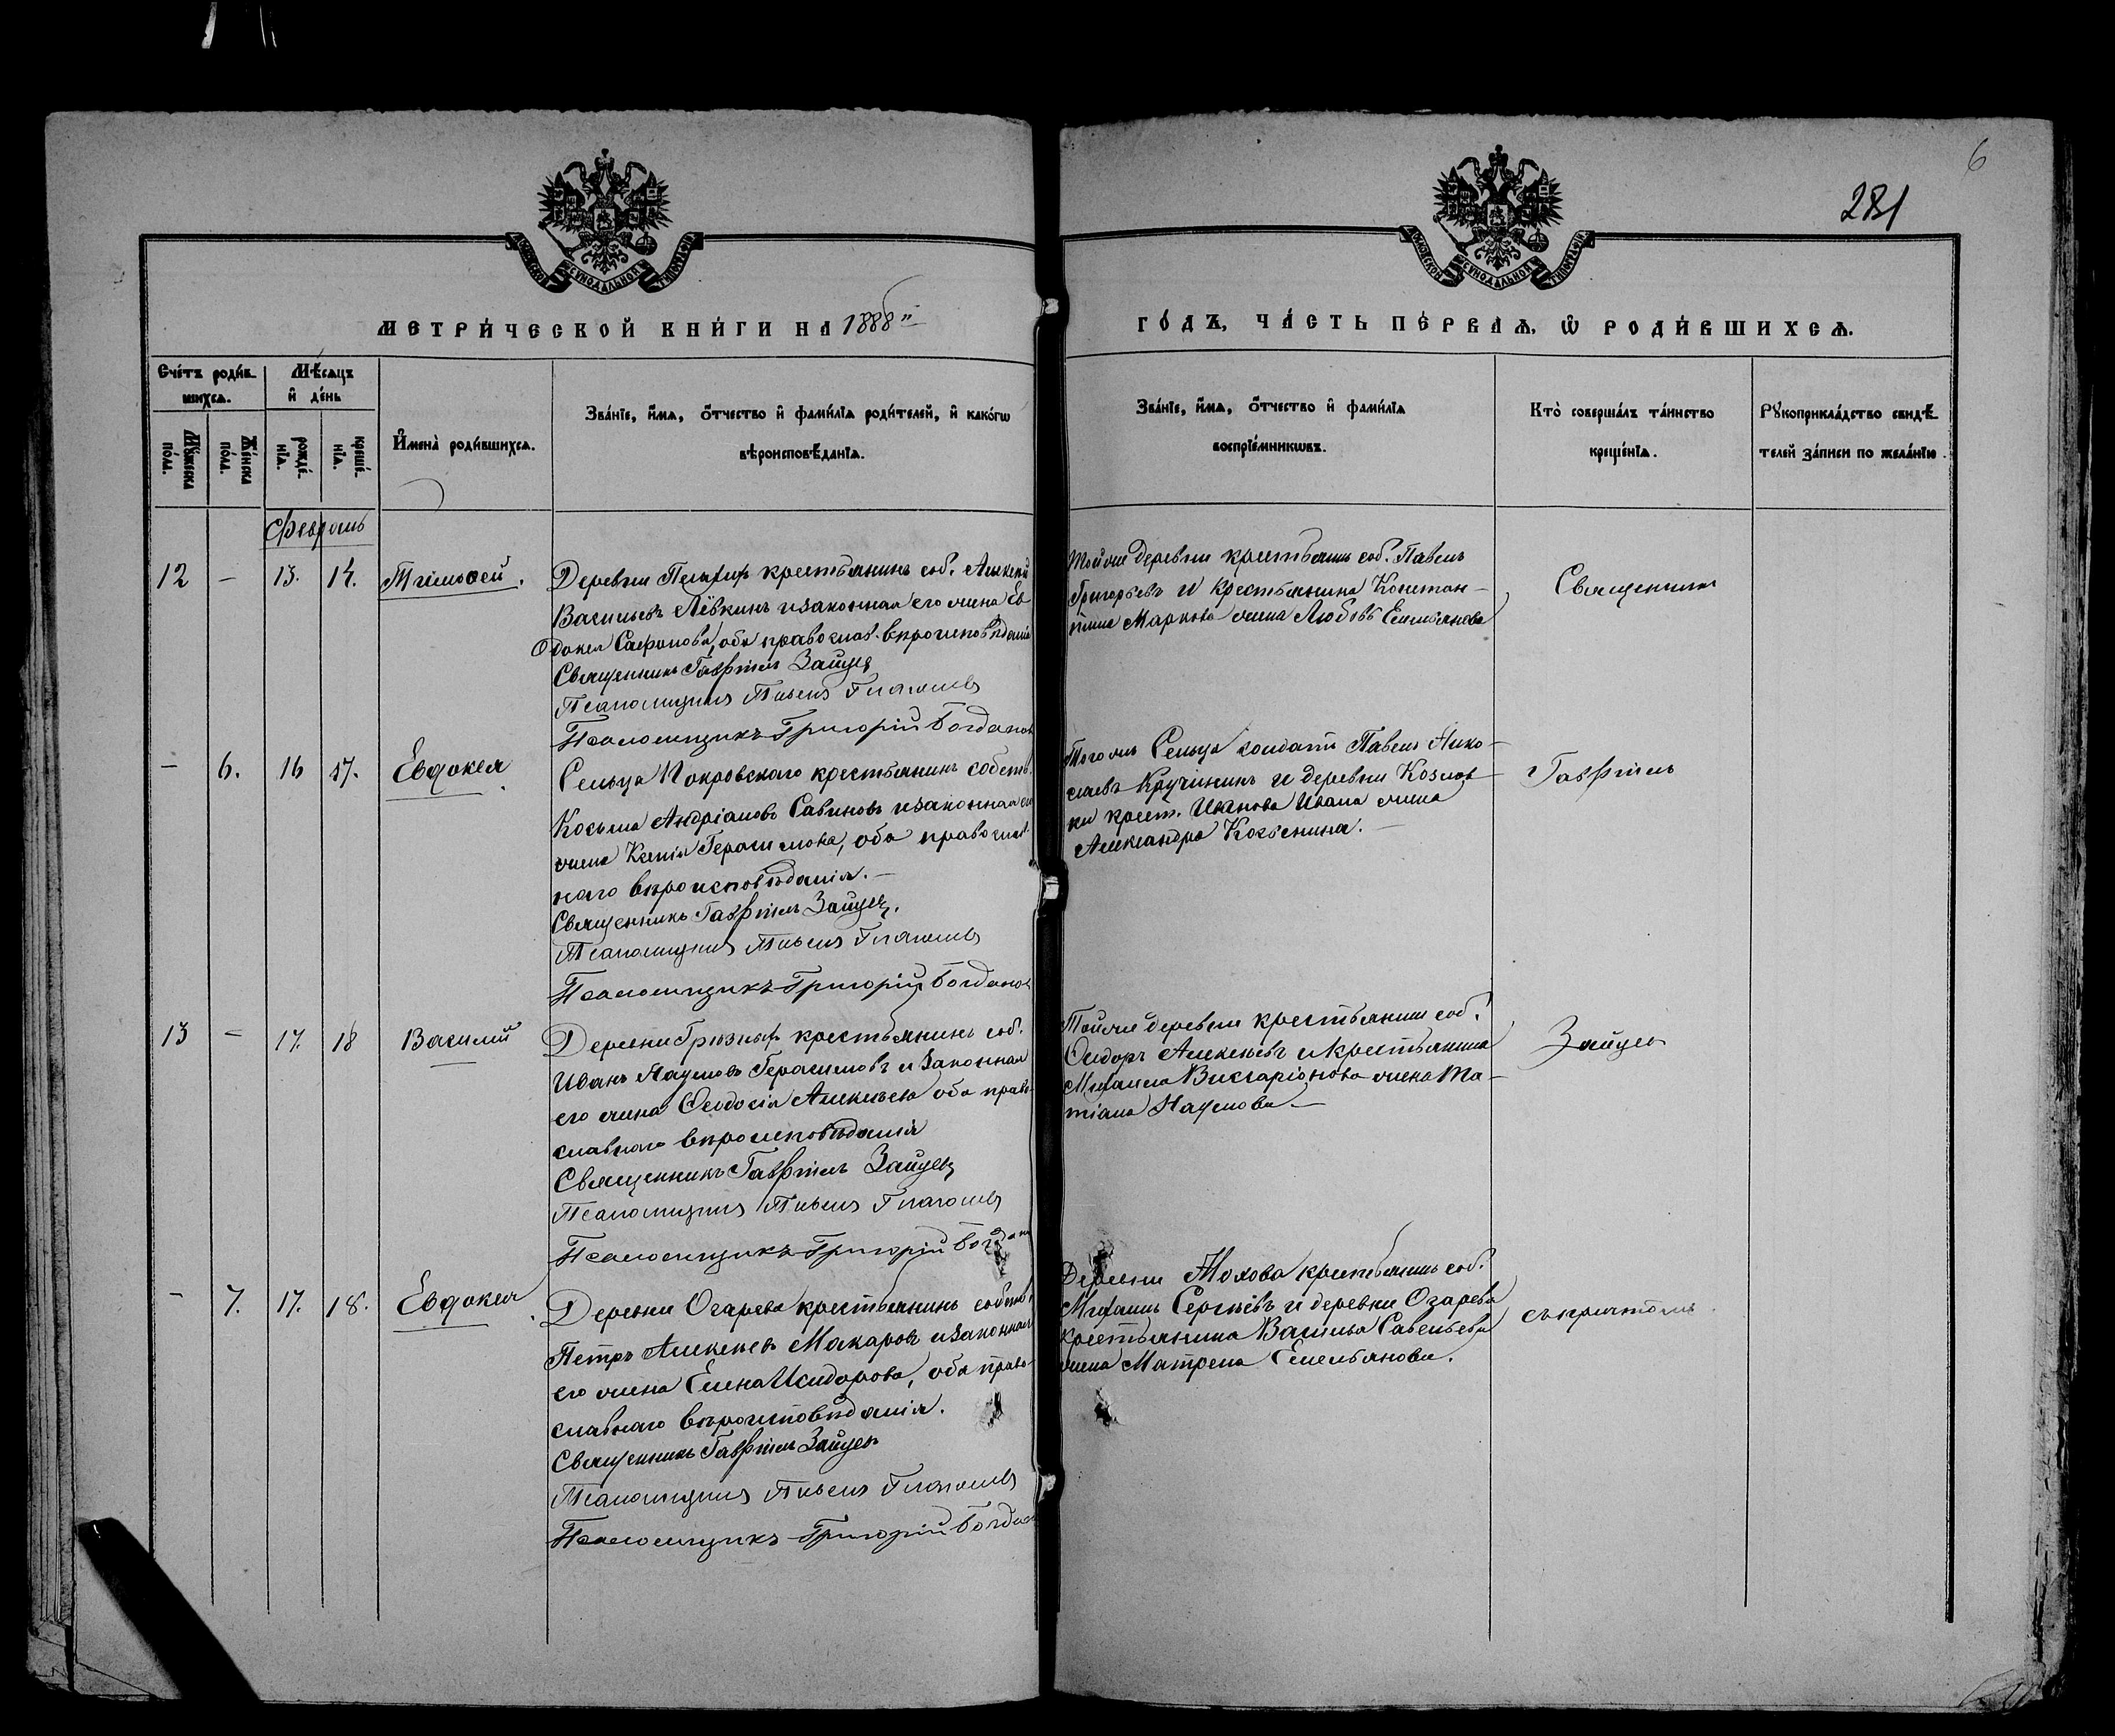 6
281
МОСКОВСКОЙ СѴНОДАЛЬНОЙ ТИПОГРАФІИ
МОСКОВСКОЙ СѴНОДАЛЬНОЙ ТИПОГРАФІИ
МЕТРИ́ЧЕСКОЙ КНИ́ГИ НА 1888й
ГО́ДЪ, ЧА́СТЬ ПЕ́РВАѦ, Ѡ҆ РОДИ́ВШИХСѦ.
Сче́тъ роди́в-
шихсѧ.
Мѣ́сѧцъ
и҆ де́нь
Мꙋ́жеска по́ла.
Же́нска по́ла.
рожде́-нїѧ.
креще́-нїѧ.
И҆мена̀ роди́вшихсѧ.
Зва́нїе, и҆́мѧ, ѻ҆́тчество и҆ фами́лїѧ роди́телей, и҆ како́гѡ
вѣроисповѣ́данїѧ.
Зва́нїе, и҆́мѧ, ѻ҆́тчество и҆ фами́лїѧ
воспрїе́мникѡвъ.
Кто̀ соверша́лъ та́инство
креще́нїѧ.
Рꙋкоприкла́дство свидѣ́-
телей за́писи по жела́нїю.
Февраль
12 - 13. 14. Тимоѳей.
Деревни крестьянинъ соб. Алексѣй
Васильевъ Лёвкинъ и законная его жена Ев
докея Сафонова, оба православ. вѣроисповѣданія
Священникъ Гавріилъ Зайцевъ
Псаломщикъ Павелъ Глаголевъ
Псаломщикъ Григорій Богданов
Той же деревни крестьянинъ соб. Павелъ
Григорьевъ и крестьянина Констан-
тина Маркова жена Любовь Емельянова
Священникъ
- 6. 16 17. Евдокея.
Сельца Покровскаго крестьянинъ собств.
Косьма Андріановъ Савиновъ и законная его
жена Ксенія Герасимова, оба православ-
наго вѣроисповѣданія.-
Священникъ Гавріилъ Зайцевъ.
Псаломщикъ Павелъ Глаголевъ
Псаломщикъ Григорій Богданов
Того же Сельца солдатъ Павелъ Нико-
лаевъ Кручининъ и деревни Козлов-
ки крест. Иванова Ивана жена
Александра Косьмина.-
Гавріилъ
13 - 17. 18 Василій
Деревни крестьянинъ соб.
Иванъ Наумовъ Герасимовъ и законная
его жена Ѳеодосія Алексѣева оба право-
славнаго вѣроисповѣданія
Священникъ Гавріилъ Зайцевъ
Псаломщикъ Павелъ Глаголевъ
Псаломщикъ Григорій Богдан
Той же деревни крестьянинъ соб.
Ѳедоръ Алексѣевъ и крестьянина
Михаила Виссаріонова жена Та-
тіана Наумова.-
Зайцевъ
- 7. 17. 18. Евдокея.
Деревни Огарева крестьянинъ собств
Петръ Алексѣевъ Макаровъ и законная
его жена Елена Исидорова, оба право-
славнаго вѣроисповѣданія.
Священникъ Гавріилъ Зайцевъ
Псаломщикъ Павелъ Глаголевъ
Псаломщикъ Григорій Богдан
Деревни крестьянинъ соб.
Михаилъ Сергѣевъ и деревни Огарева
крестьянина Василья Савельева
жена Матрена Емельянова.
съ причтомъ.